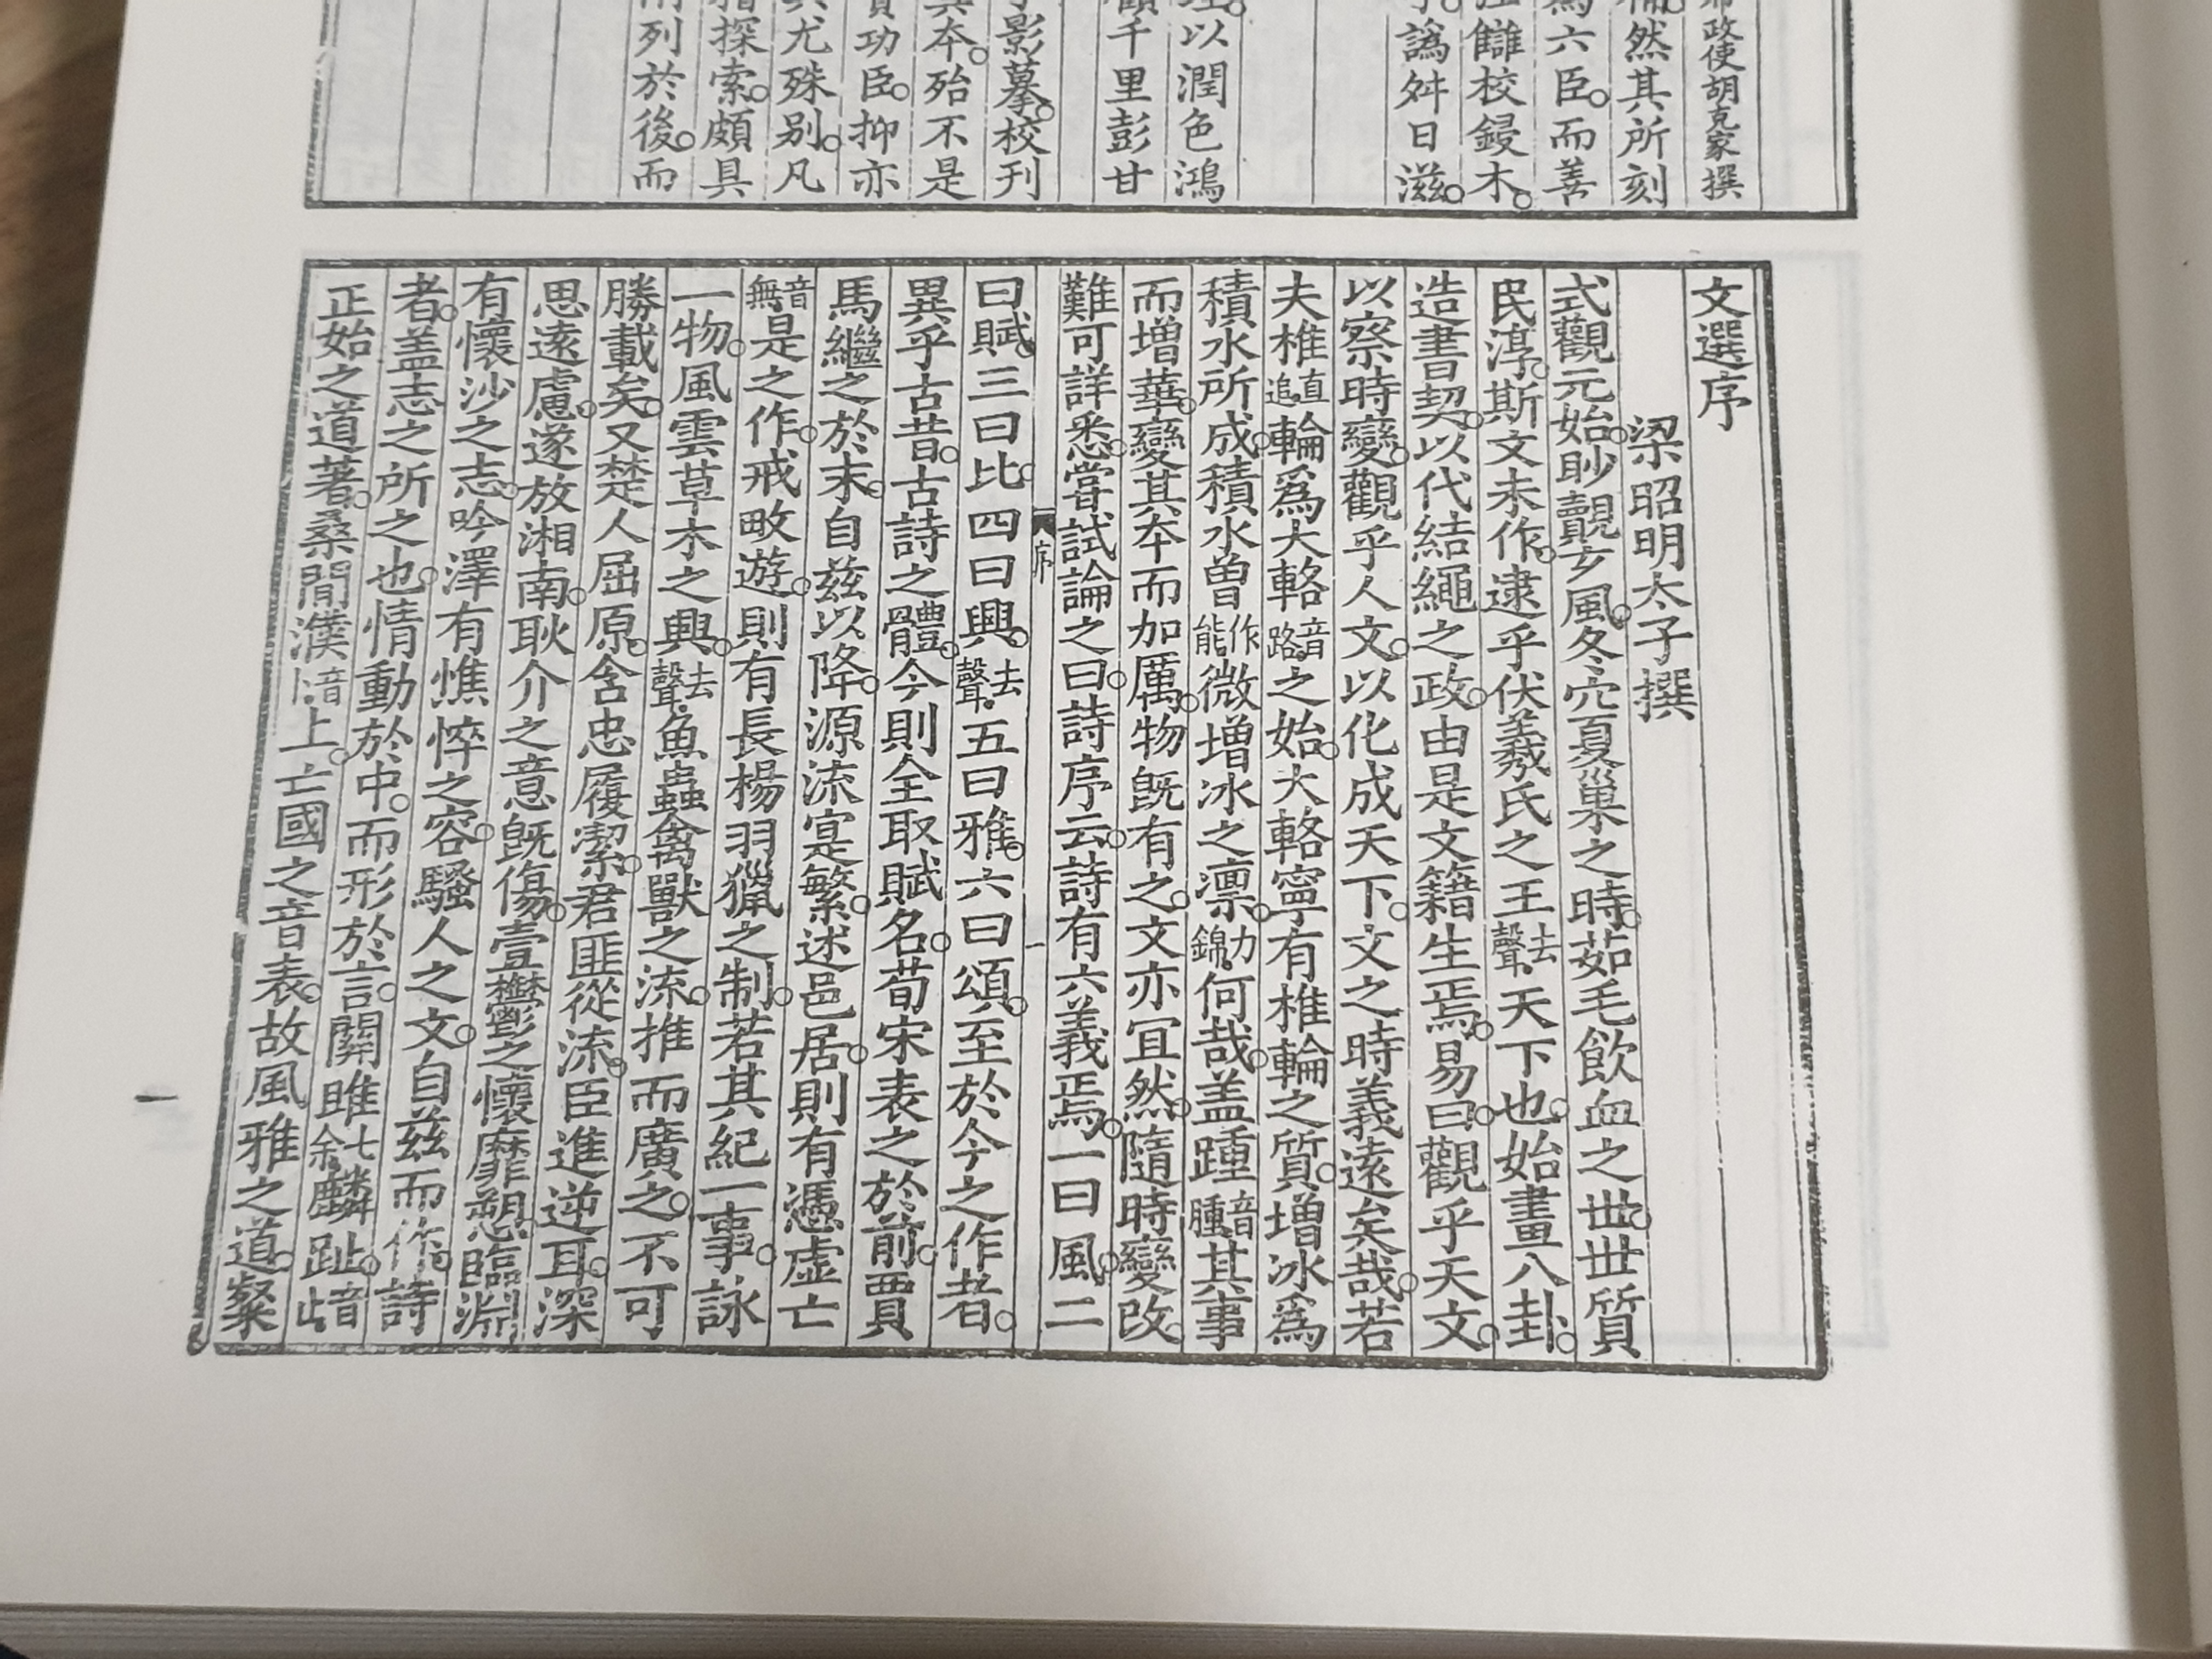 布政使胡克家撰
然其所刻
爲六臣。而善
讎校鋟木。
譌舛日滋。
以潤色鴻
千里彭甘
影摹。校刊
本。殆不是
功臣。抑亦
尤殊别。凡
探索。頗具
列於後。而
文選序
梁昭明太子撰
式觀元始。眇覿玄風。冬穴夏巢之時。茹毛飲血之世。世質
民淳。斯文未作。逮乎伏羲氏之王去聲。天下也。始畫八卦。
造書契。以代結繩之政。由是文籍生焉。易曰。觀乎天文。
以察時變。觀乎人文。以化成天下。文之時義遠矣哉。若
夫椎直追輪爲大輅音路。之始。大輅寧有椎輪之質。增冰爲
積水所成。積水曾作能微增冰之凛。力錦。何哉。盖踵音腫其事
而增華。變其本而加厲。物旣有之。文亦宜然。隨時變改。
難可詳悉。嘗試論之曰。詩序云。詩有六義焉。一曰風。二
序
一
曰賦。三曰比。四曰興。去聲。五曰雅。六曰頌。至於今之作者。
異乎古昔。古詩之體。今則全取賦名。荀宋表之於前。賈
馬繼之於末。自兹以降。源流寔繁。述邑居。則有憑虛亡
音無是之作。戒畋遊。則有長楊羽獵之制。若其紀一事。詠
一物。風雲草木之興。去聲。魚蟲禽獸之流。推而廣之。不可
勝載矣。又楚人屈原。含忠履潔。君匪從流。臣進逆耳。深
思遠慮。遂放湘南。耿介之意旣傷。壹鬱之懷靡愬。臨淵
有懷沙之志。吟澤有憔悴之容。騷人之文。自兹而作。詩
者。盖志之所之也。情動於中。而形於言。關雎七余。麟趾。音止。
正始之道著。桑間濮音卜。上。亡國之音表。故風雅之道。粲
一